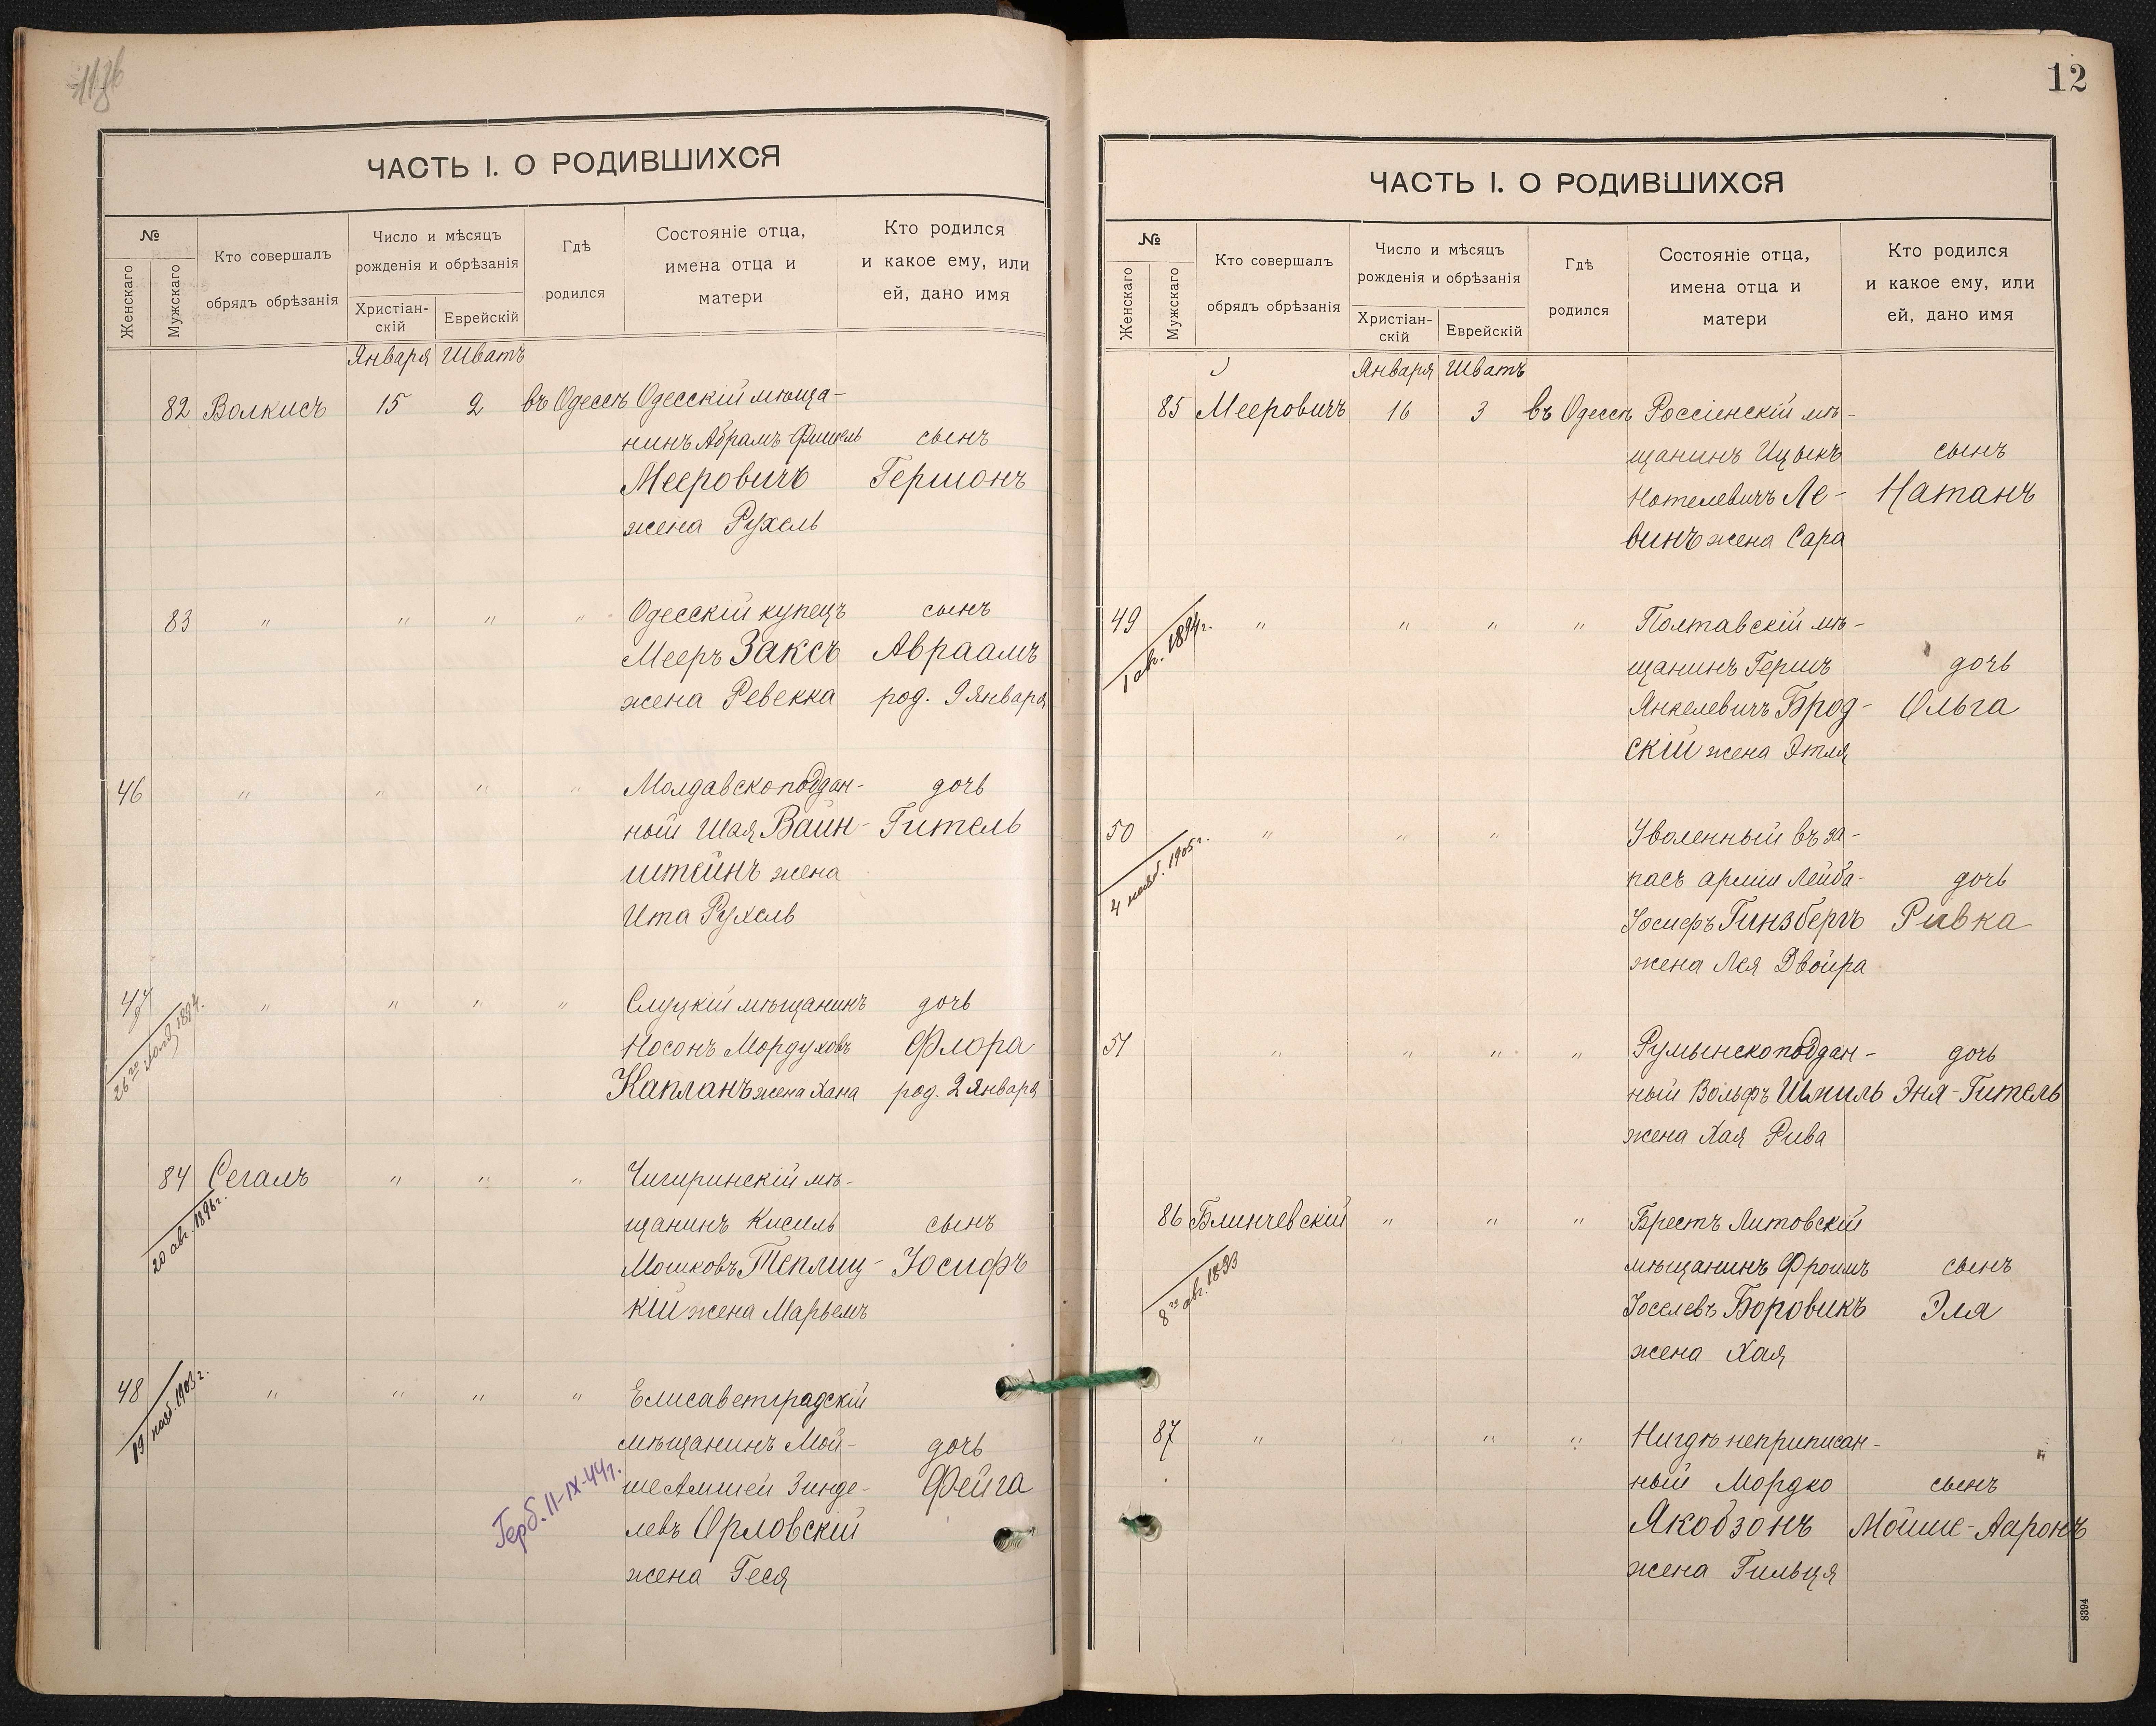 ЧАСТЬ I. О РОДИВШИХСЯ
№
Женскаго
Мужскаго
Кто совершалъ
обрядъ обрѣзанія
Число и мѣсяцъ
рожденія и обрѣзанія
Христіан-
скій
Еврейскій
Гдѣ
родился
Состояніе отца,
имена отца и
матери
Кто родился
и какое ему, или
ей, дано имя
Января Шватъ
82 Волкисъ 15 2 въ Одессѣ Одесскій мѣща-
нинъ Абрамъ Фишель сынъ
Мееровичъ Гершонъ
жена Рухель
83 " " " " Одесскій купецъ сынъ
Мееръ Заксъ Авраамъ
жена Ревекка род. 9 Января
46 " " " " Молдавскоподдан- дочь
ный Шая Вайн- Гитель
штейнъ жена
Ита Рухель
47 " " " " Слуцкій мѣщанинъ дочь
Носонъ Мордуховъ Флора
Капланъ жена Хана род. 2 Января
84 Сегалъ " " " Чигиринскій мѣ-
20 авг. 1896 г.
щанинъ Кисиль сынъ
Мошковъ Теплиц- Іосифъ
кій жена Марьемъ
48 " " " " Елисаветградскій
19 нояб. 1903 г.
мѣщанинъ Мой- дочь
ше Амшей Зинде- Фейга
левъ Орловскій
жена Геся
Герб. 11-IX-44 г.
12
ЧАСТЬ I. О РОДИВШИХСЯ
№
Женскаго
Мужскаго
Кто совершалъ
обрядъ обрѣзанія
Число и мѣсяцъ
рожденія и обрѣзанія
Христіан-
скій
Еврейскій
Гдѣ
родился
Состояніе отца,
имена отца и
матери
Кто родился
и какое ему, или
ей, дано имя
Января Шватъ
85 Мееровичъ 16 3 въ Одессѣ Россіенскій мѣ-
щанинъ Ицыкъ сынъ
Нотелевичъ Ле- Натанъ
винъ жена Сара
49 " " " " Полтавскій мѣ-
щанинъ Гершъ дочь
Янкелевичъ Брод- Ольга
скій жена Этля
50 " " " Уволенный въ за-
4 нояб. 1905 г.
пасъ арміи Лейба- дочь
Іосифъ Гинзбергъ Ривка
жена Лея Двойра
51 " " " " Румынскоподдан- дочь
ный Вольфъ Шмиль Эня-Гитель
жена Хая Рива
86 Блинчевскій " " " Брестъ Литовскій
8го авг. 1893
мѣщанинъ Фроимъ сынъ
Іоселевъ Боровикъ Эля
жена Хая
87 " " " " Нигдѣ неприписан-
ный Мордко сынъ
Якобзонъ Мойше-Ааронъ
жена Гильця
8394